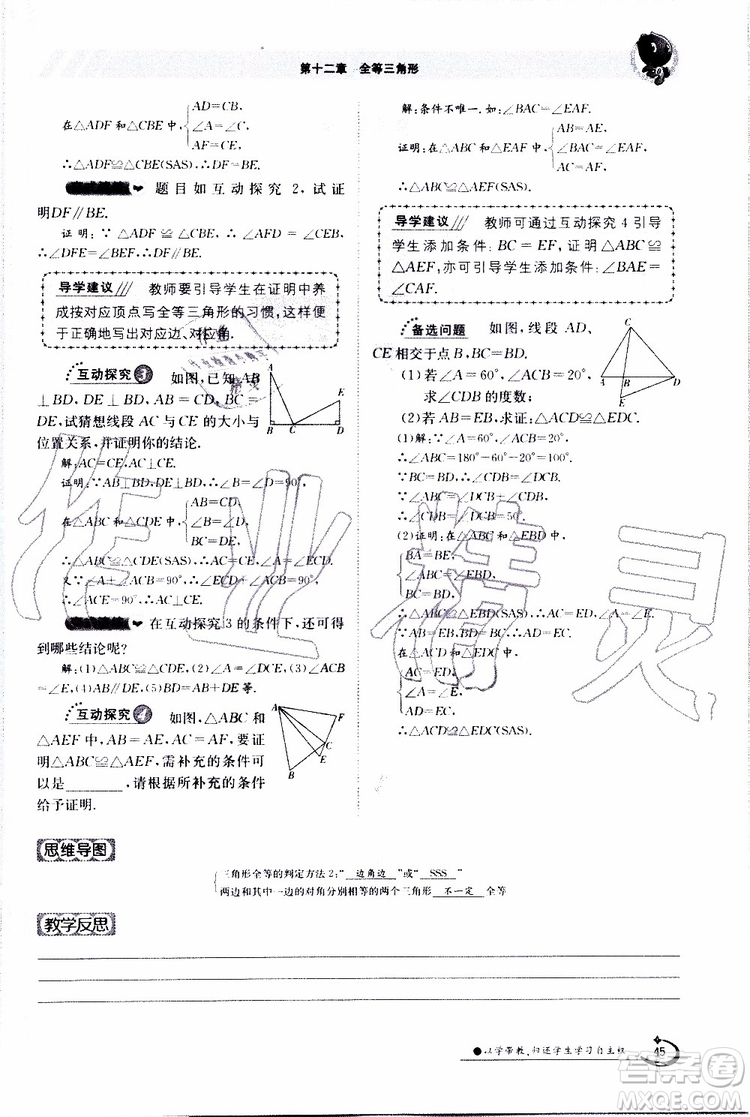 第十二章 全等三角形
AD=CB,
在△ADF 和△CBE 中,
∠A=∠C,
AF=CE,
∴△ADF≌△CBE(SAS).∴DF=BE.
题目如互动探究 2,试证
明DF∥BE.
证明:∵△ADF≌△CBE(已证),
∴∠DFE=∠BEF.∴DF∥BE.
导学建议
教师要引导学生在证明中养
成按对应顶点写全等三角形的习惯,这样便
于正确地写出对应边、对应角.
互动探究 3
如图,已知 AB
⊥BD,DE⊥BD,AB=CD,BC=
DE,试猜想线段 AC 与 CE 的大小与
位置关系,并证明你的结论.
A
E
B
C
D
解:AC=CE,AC⊥CE.
证明:∵AB⊥BD,DE⊥BD,∴∠B=∠D=90°,
AB=CD,
在△ABC 和△CDE 中,
∠B=∠D,
BC=DE,
∴△ABC≌△CDE(SAS).∴AC=CE,∠ACB=∠E.
又∵∠E+∠ECD=90°,∴∠ECD+∠ACB=90°,
∴∠ACE=90°,∴AC⊥CE.
在互动探究 3 的条件下,还可得
到哪些结论呢?
解:(1)△ABC≌△CDE,(2)∠A=∠DCE,(3)∠ACB
=∠E,(4)AB∥DE,(5)BD=AB+DE 等.
互动探究 4
如图,△ABC 和
△AEF 中,AB=AE,AC=AF,要使
△ABC≌△AEF,需补充的条件可
以是________,请根据所补充的条件
给予证明.
A
F
C
E
B
解:条件不唯一.如:∠BAC=∠EAF.
AB=AE,
证明:在△ABC 和△AEF 中,
∠BAC=∠EAF,
AC=AF,
∴△ABC≌△AEF(SAS).
导学建议
教师可通过互动探究 4 引导
学生添加条件:BC=EF,证△ABC≌
△AEF,亦可引导学生添加条件:∠BAE=
∠CAF.
备选问题
如图,线段 AD,
CE相交于点 B,BC=BD=DC.
(1)若∠A=60°,∠ACB=20°,
求∠CDB 的度数;
(2)若 AB=EB,求证:△ACD≌△EDC.
C
A
B
D
E
(1)解:∵∠A=60°,∠ACB=20°,
∴∠ABC=180°-60°-20°=100°.
∵BC=BD,∴∠DCB=∠CDB.
∵∠ABC=∠DCB+∠CDB,
∴∠CDB=∠DCB=50°.
(2)证明:在△ABC 和△EBD 中,
BA=BE,
∠ABC=∠EBD,
BC=BD,
∴△ABC≌△EBD(SAS).∴AC=ED,∠A=∠E.
∵AB=EB,BC=BD,∴AD=EC.
在△ACD 和△EDC 中,
AC=ED,
∠A=∠E,
AD=EC,
∴△ACD≌△EDC(SAS).
思维导图
三角形全等的判定方法2:“边角边”或“SSS”
两边和其中一边的对角分别相等的两个三角形 不一定 全等
教学反思
●以学带教,归还学生学习自主权
45
作业精灵
答案圈
MXQE.COM